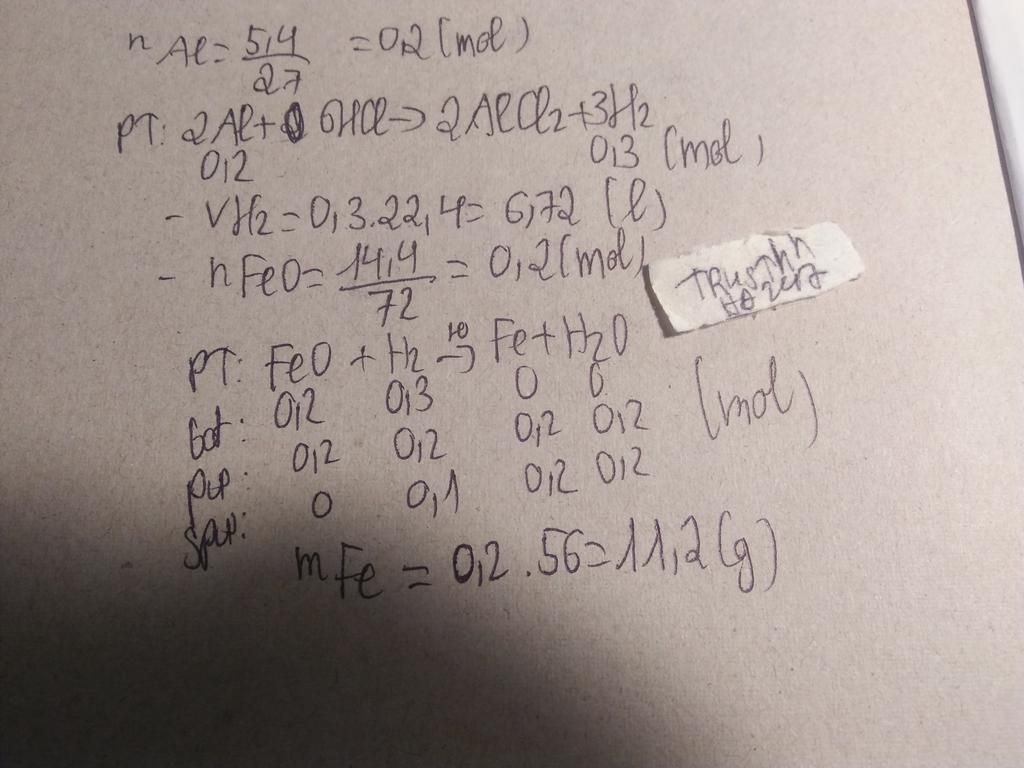 n Al = 5,4/27 = 0,2 (mol)
PT: 2Al + 6HCl → 2AlCl2 + 3H2
0,2 0,3 (mol)
- VH2 = 0,3.22,4 = 6,72 (l)
- nFeO = 14,4/72 = 0,2 (mol)
PT: FeO + H2 → Fe + H2O
bđ: 0,2 0,3 0 0
pư: 0,2 0,2 0,2 0,2 (mol)
spư: 0 0,1 0,2 0,2
mFe = 0,2.56 = 11,2 (g)